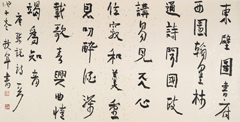 東壁圖書府
西園翰墨林
誦詩聞國政
講易見天心
位竊和羹重
恩叨醉酒深
載歌春興曲情
竭為知音
唐張說詩